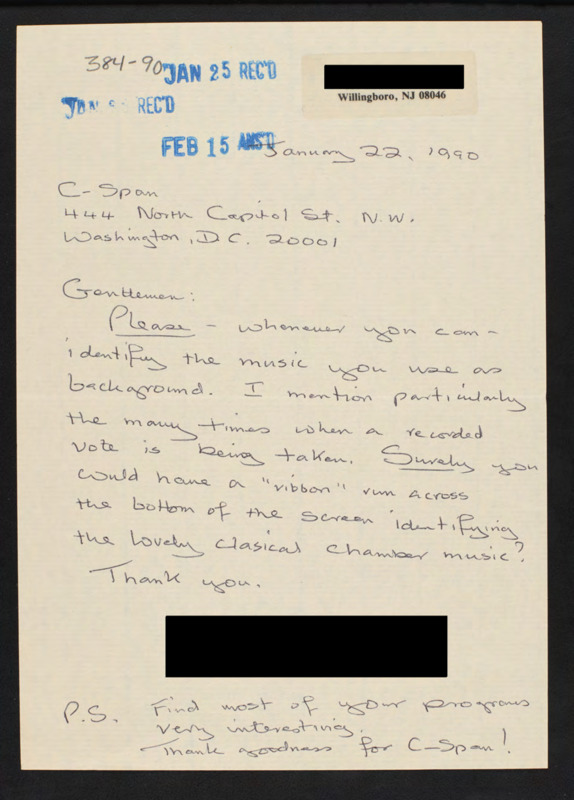 384-90
JAN 25 REC'D
REC'D
FEB 15 ANS'D
Willingboro, NJ 08046
January 22, 1990
C-Span
444 North Capitol St. N.W.
Washington, D.C. 20001
Gentlemen:
Please - whenever you can -
identify the music you use as
background. I mention particularly
the many times when a recorded
vote is being taken. Surely you
could have a "ribbon" run across
the bottom of the screen identifying
the lovely clasical chamber music?
Thank you.
P.S. Find most of your programs
very interesting.
Thank goodness for C-Span!